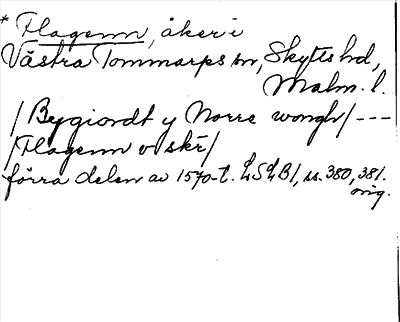 * Flagenn, åker i
Västra Tommarps sn, Skytts hd,
Malm. l.
/Bygiordt y Norre wongh/ ---
/Flagenn v skr/
förra delen av 1570-t. LSLB1, ss. 380, 381.
orig.